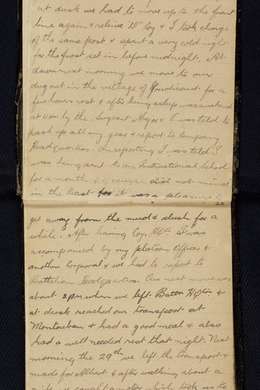 at dusk we had to move up to the front
line again & relieve W Coy & I took charge
of the same post & spent a very cold night
for the frost set in before midnight. At
dawn next morning we went to our
dugout in the village of for a
few hours rest & after being asleep
at noon by the Sergeant Major & I was told to
pack up all my gear & report to Company
Headquarters. On reporting I was told I
was being sent to an Instructional School
for a month of course did not mind
in the least for it was a pleasure to
get away from the mud & slush for a
while. After leaving Coy. HQrs I was
accompanied by my platoon Officer &
another Corporal & we had to report to
Battalion Headquarters. Our next move was
about 2 PM when we left Battn HQters &
at dusk reached our transport at
Montauban & had a good meal & also
had a well needed rest that night. Next
morning the 29th we left the transport &
made for Albert & after walking about a